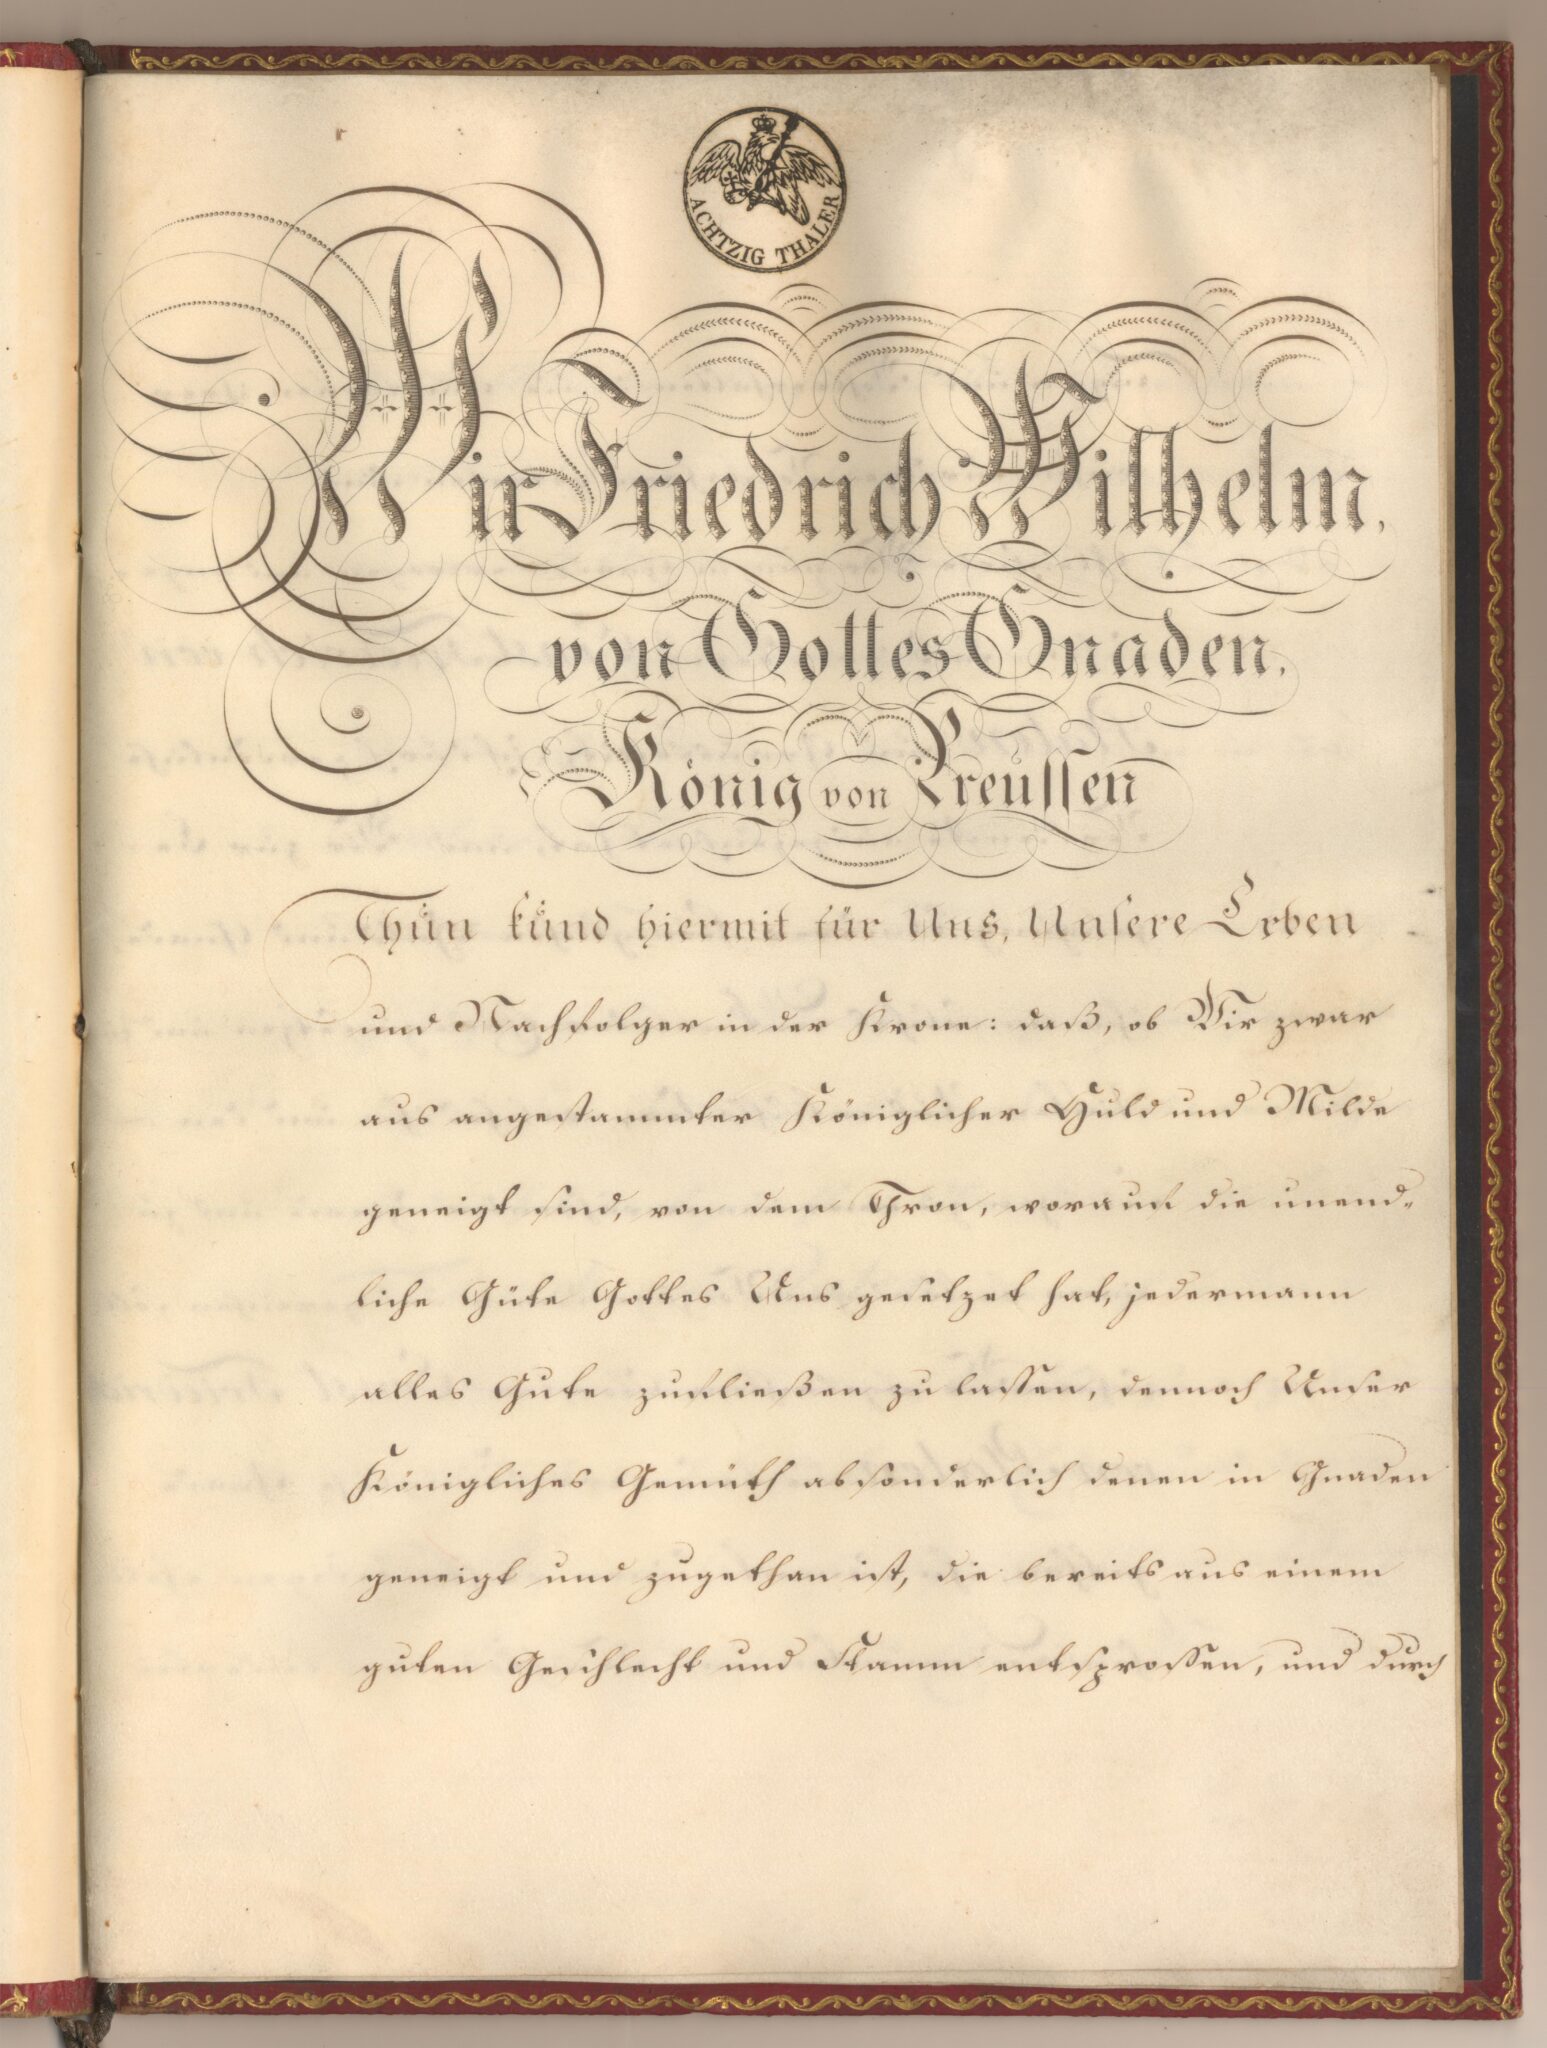 ACHTZIG THALER
Wir Friedrich Wilhelm,
von Gottes Gnaden,
König von Preussen
Thun kund hiermit für Uns, Unsere Erben
und Nachfolger in der Krone: daß, ob Wir zwar
aus angestammter Königlicher Huld und Milde
geneigt sind, von dem Thron, worauf die unend-
liche Güte Gottes Uns gesetzet hat, jedermann
alles Gute zufließen zu lassen, dennoch Unser
Königliches Gemüth absonderlich denen in Gnaden
geneigt und zugethan ist, die bereits aus einem
guten Geschlecht und Stamm entsprossen, und durch